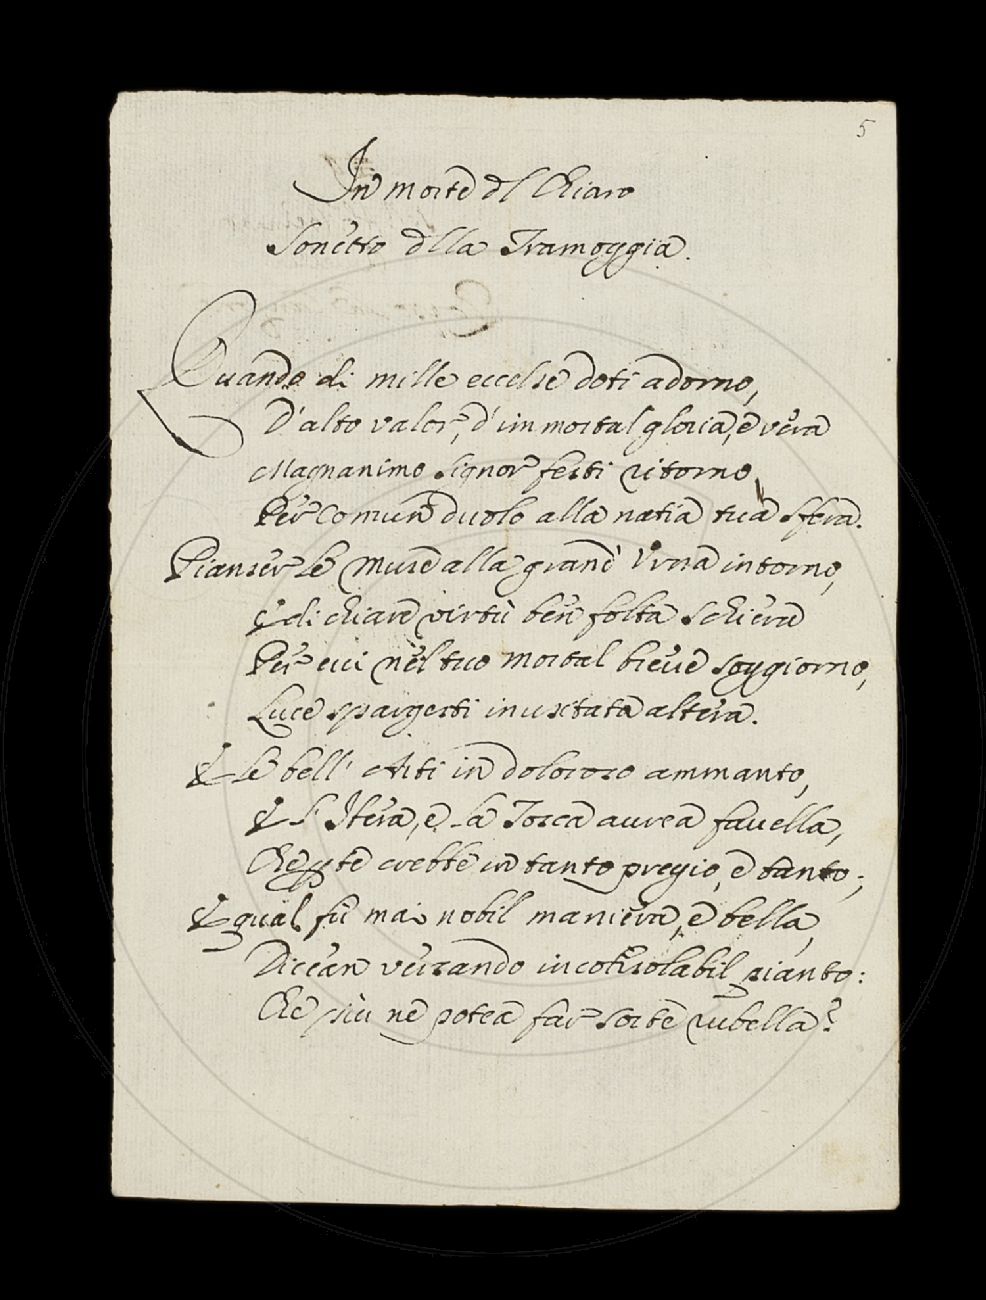 5
In morte dl Chiaro
Sonetto dlla Tramoggia.
Quando di mille eccelse doti adorno,
D'alto valor, d'immortal gloria, e vera
Magnanimo Signor festi ritorno,
Per comun duolo alla natia tua sfera.
Pianser le Muse alla grand' Urna intorno,
E di chiare virtù ben folta schiera
Per cui nel tuo mortal breve soggiorno,
Luce spargesti inusitata altera.
E le bell' Arti in doloroso ammanto,
E l'Itera, e la Tosca aurea favella,
Che p te crebbe in tanto pregio, e tanto;
E qual fù mai nobil maniera, e bella,
Dicean versando incosolabil pianto:
Che più ne potea far sorte rubella?